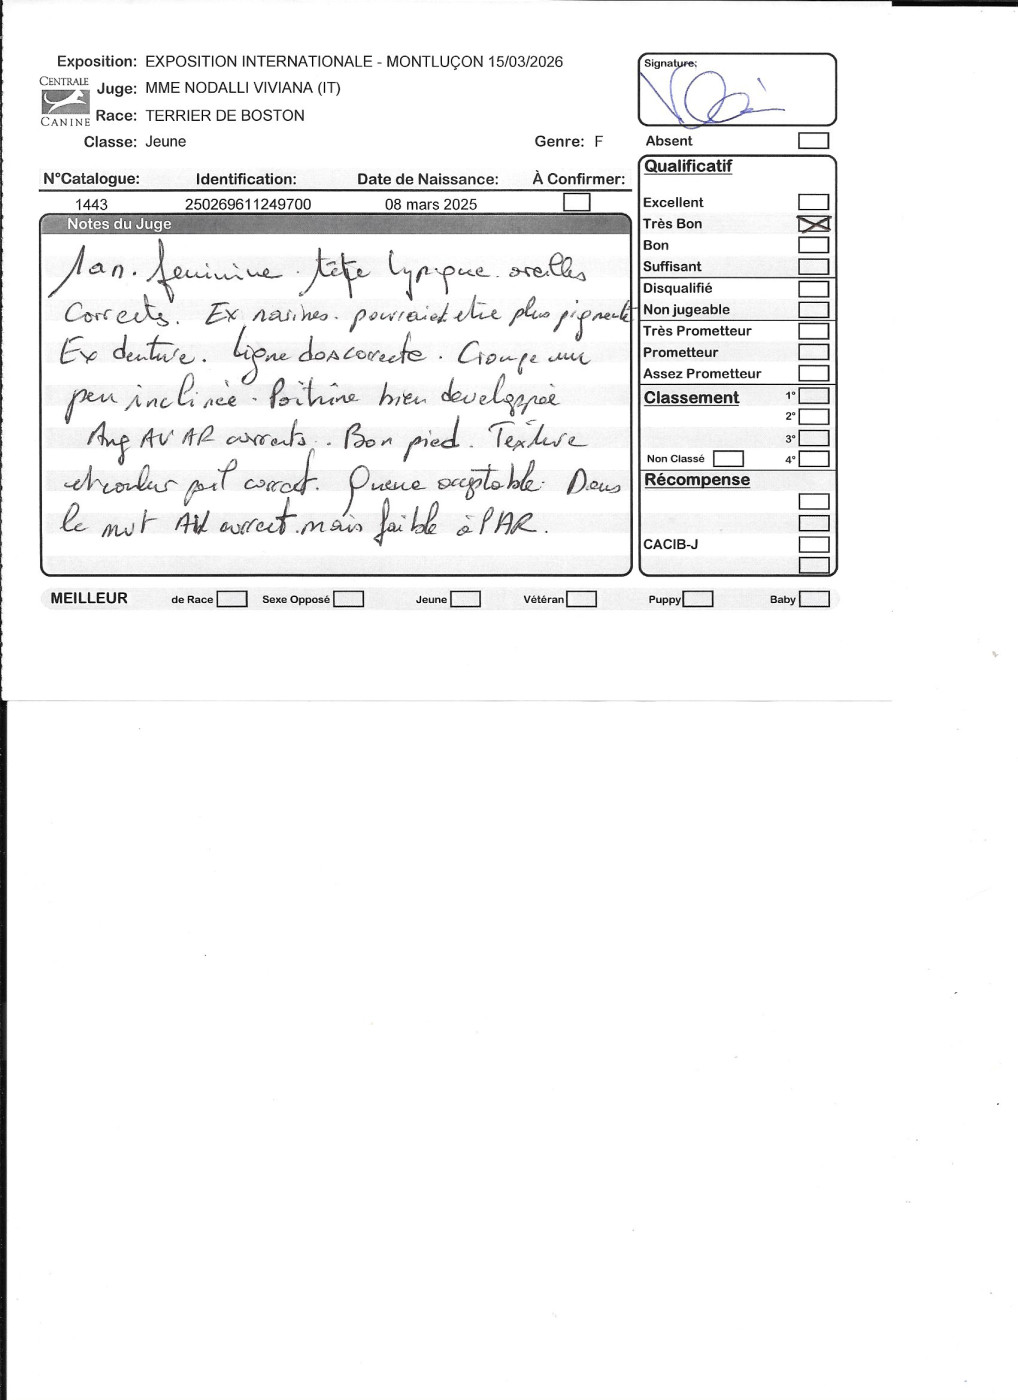 Exposition: EXPOSITION INTERNATIONALE - MONTLUÇON 15/03/2026
CENTRALE CANINE
Juge: MME NODALLI VIVIANA (IT)
Race: TERRIER DE BOSTON
Classe: Jeune Genre: F
N°Catalogue: Identification: Date de Naissance: À Confirmer:
1443 250269611249700 08 mars 2025
Notes du Juge
1an. feminine. tête typique. oreilles
Correcte. Ex narines. pourraient etre plus pigmenté
Ex denture. Ligne dos correcte. Croupe un
peu inclinée. Poitrine bien developpée
Ang AV AR corrects. Bon pied. Texture
et couleur poil correct. Queue acceptable. Dans
le mvt AV correct. mais faible à l'AR.
Signature:
Absent
Qualificatif
Excellent
Très Bon
Bon
Suffisant
Disqualifié
Non jugeable
Très Prometteur
Prometteur
Assez Prometteur
Classement 1°
2°
3°
Non Classé 4°
Récompense
CACIB-J
MEILLEUR de Race Sexe Opposé Jeune Vétéran Puppy Baby